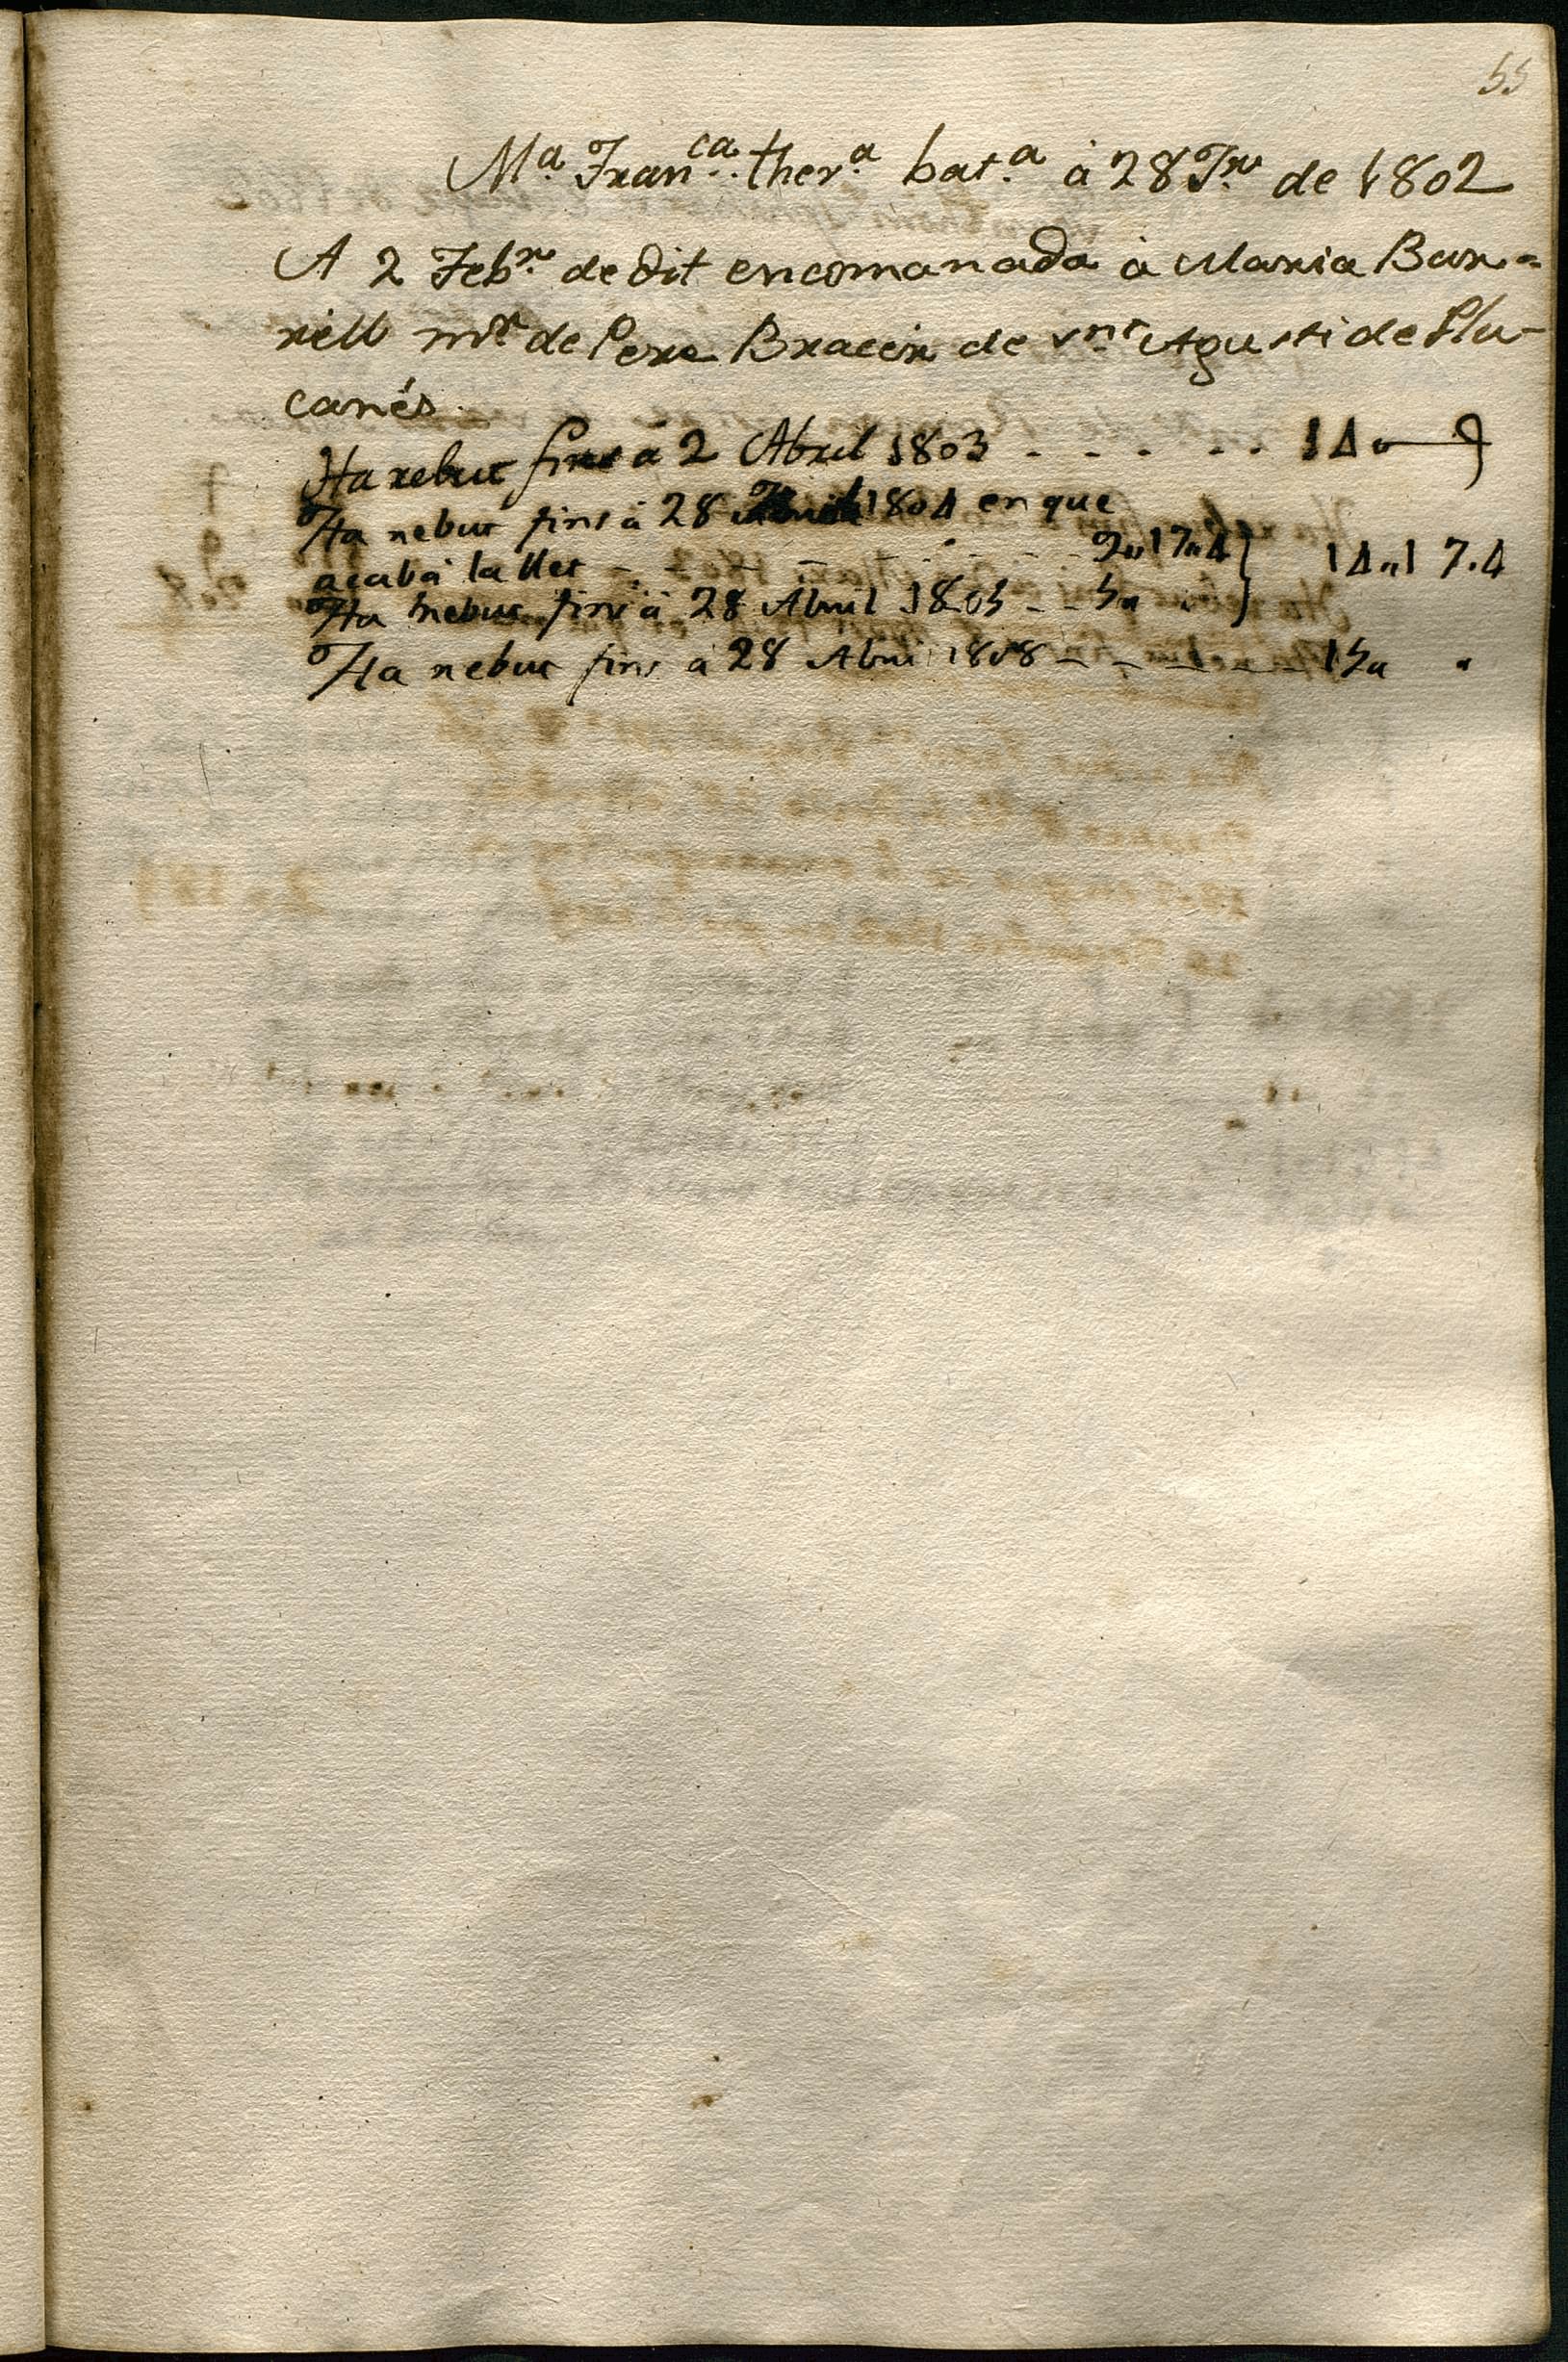 55
Mª Franca. therª batª à 28 Jr de 1802
A 2 Febr. de dit encomanada à Maria Bar=
rell mr de Pere Bracer de snt Agusti de Llu-
canés.
Ha rebut fins à 2 Abril 1803 - . - . - . . 14 "
Ha rebut fins à 28 1804 en que
acabà la llet - - - - - - 9 " 17 " 4
Ha rebut fins à 28 Abril 1805 - - 5 " " } 14 " 17 . 4
Ha rebut fins à 28 Abri 1808 - - - - 15 " "